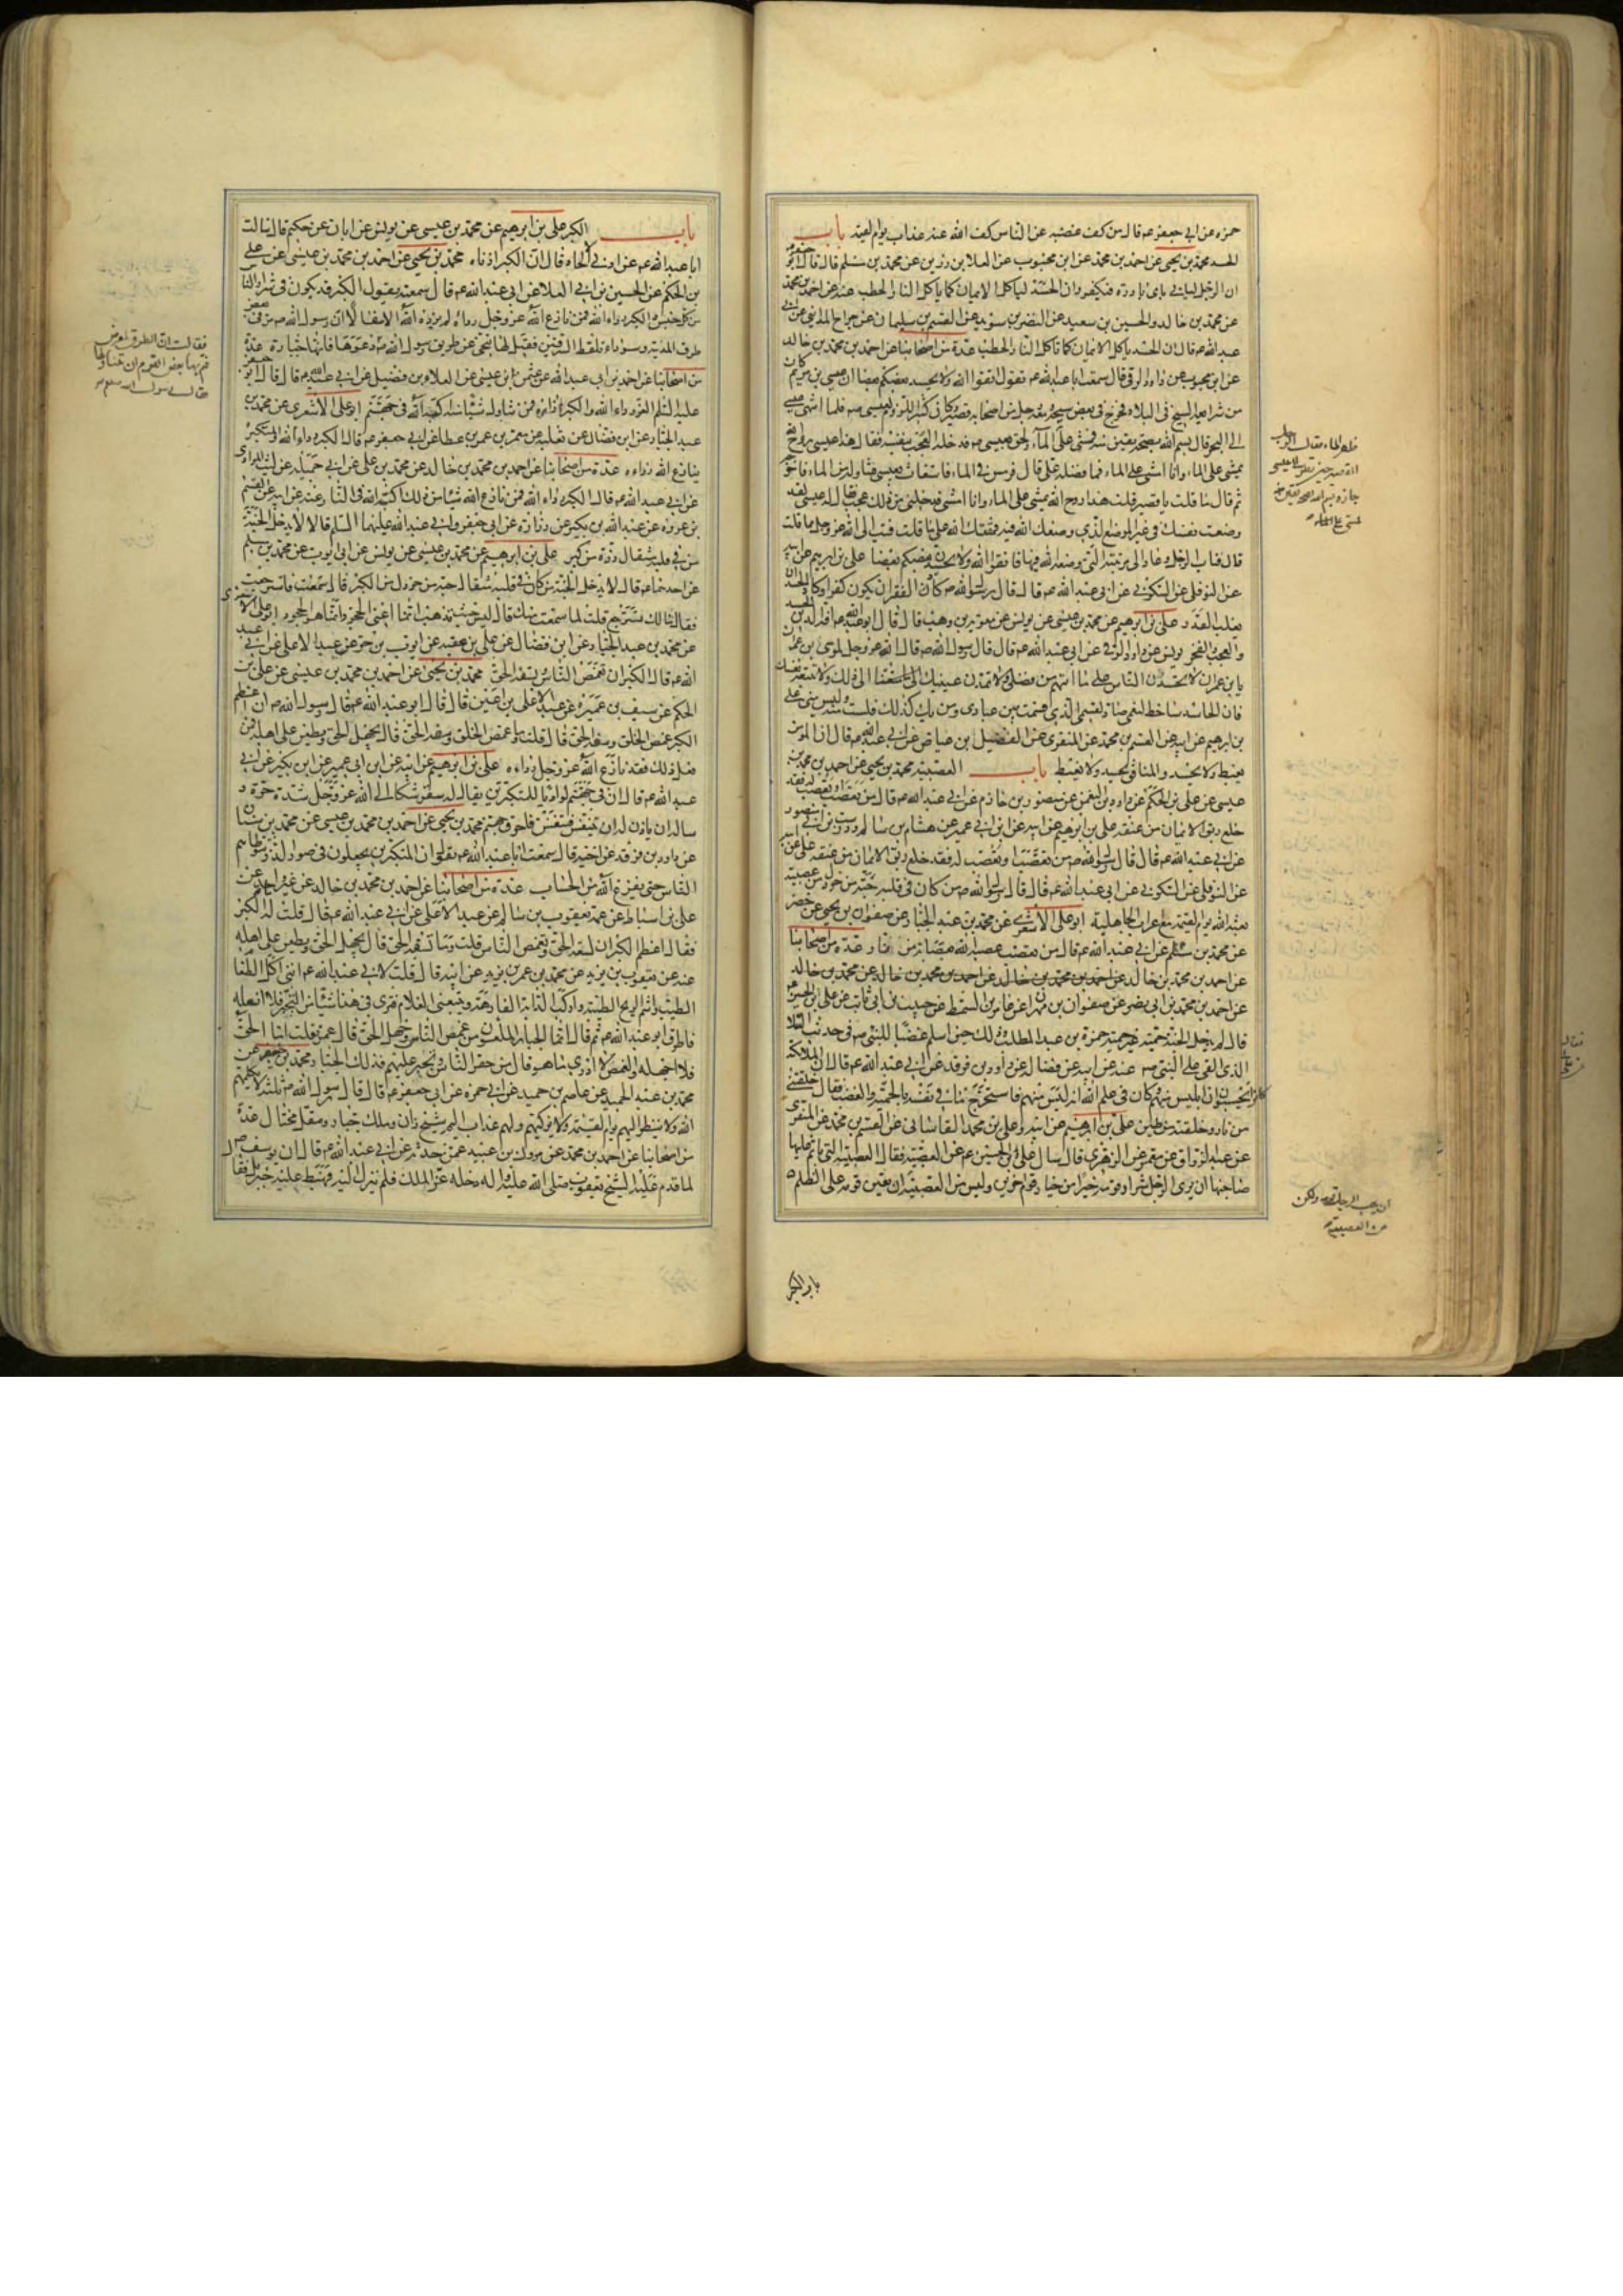 حمزه عن ابي جعفر عه قال من كف غضبه عن الناس كف الله عنه عذاب يوم القيمة باب
الحسد محمد بن يحيى عن احمد بن محمد عن ابن محبوب عن العلا بن رزين عن محمد بن مسلم قال قال ابو جعفر عه
ان الرجل لياتي باى بادرة فيكفر وان الحسد لياكل الايمان كما ياكل النار الحطب عنه عن احمد بن محمد
عن محمد بن خالد والحسين بن سعيد عن النضر بن سويد عن القسم بن سليمان عن جراح المدايني عن ابي
عبد الله عه قال ان الحسد ياكل الايمان كما تاكل النار الحطب عدة من اصحابنا عن احمد بن محمد بن خالد
عن ابن محبوب عن داود الرقي قال سمعت ابا عبد الله عه يقول اتقوا الله ولا يحسد بعضكم بعضا ان عيسى بن مريم كان
من شرايعه السيح في البلاد فخرج في بعض سيحه ومعه رجل من اصحابه قصير وكان كثير اللزوم لعيسى عه فلما انتهى عيسى
الى البحر قال بسم الله بصحة يقين منه فمشى على الماء ولحق بعيسى عه فدخله العجب بنفسه فقال هذا عيسى روح الله
يمشي على الماء وانا امشي على الماء فما فضله علي قال فرمس في الماء فاستغاث بعيسى فتناوله من الماء فاخرجه
ثم قال ما قلت يا قصير قلت هذا روح الله يمشي على الماء وانا امشي فدخلني من ذلك عجب فقال له عيسى لقد
وضعت نفسك في غير الموضع الذي وضعك الله فيه فمقتك الله على ما قلت فتب الى الله عز وجل مما قلت
قال فتاب الرجل وعاد الى مرتبته التي وضعه الله فيها فاتقوا الله ولا يحسدن بعضكم بعضا علي بن ابراهيم عن ابيه
عن النوفلي عن السكوني عن ابي عبد الله عه قال قال رسول الله ص كاد الفقر ان يكون كفرا وكاد الحسد ان
يغلب القدر علي بن ابراهيم عن محمد بن عيسى عن يونس عن معوية بن وهب قال قال ابو عبد الله عه افة الدين الحسد
والعجب والفخر يونس عن داود الرقي عن ابي عبد الله عه قال قال رسول الله ص قال الله عز وجل لموسى بن عمران
يا بن عمران لا تحسدن الناس على ما اتيتهم من فضلي ولا تمدن عينيك الى ذلك ولا تتبعه نفسك
فان الحاسد ساخط لنعمي صاد لقسمي الذي قسمت بين عبادي ومن يك كذلك فلست منه وليس مني علي
بن ابراهيم عن ابيه عن القسم بن محمد عن المنقري عن الفضيل بن عياض عن ابي عبد الله عه قال ان المؤمن
يغبط ولا يحسد والمنافق يحسد ولا يغبط باب العصبية محمد بن يحيى عن احمد بن محمد بن
عيسى عن علي بن الحكم عن داود بن النعمن عن منصور بن حازم عن ابي عبد الله عه قال من تعصب او تعصب له فقد
خلع ربق الايمان من عنقه علي بن ابراهيم عن ابيه عن ابن ابي عمير عن هشام بن سالم ودرست بن ابي منصور
عن ابي عبد الله عه قال قال رسول الله ص من تعصب او تعصب له فقد خلع ربق الايمان من عنقه علي عن ابيه
عن النوفلي عن السكوني عن ابي عبد الله عه قال قال رسول الله ص من كان في قلبه حبة من خردل من عصبية
بعثه الله يوم القيمة مع اعراب الجاهلية ابو علي الاشعري عن محمد بن عبد الجبار عن صفوان بن يحيى عن خضر
عن محمد بن مسلم عن ابي عبد الله عه قال من تعصب عصبه الله بعصابة من نار عدة من اصحابنا
عن احمد بن محمد بن خالد عن احمد بن محمد بن خالد عن احمد بن محمد بن خالد عن محمد بن خالد
عن احمد بن محمد بن ابي نصر عن صفوان بن مهران عن عامر بن السمط عن حبيب بن ابي ثابت عن علي بن الحسين عه
قال لم يدخل الجنة حمية غير حمية حمزة بن عبد المطلب وذلك حين اسلم غضبا للنبي ص في حديث السلا
الذي القي على النبي ص عنه عن ابيه عن فضالة عن داود بن فرقد عن ابي عبد الله عه قال ان الملائكة
كانوا يحسبون ان ابليس منهم وكان في علم الله انه ليس منهم فاستخرج ما في نفسه بالحمية والغضب فقال خلقتني
من نار وخلقته من طين علي بن ابراهيم عن ابيه وعلي بن محمد القاساني عن القسم بن محمد عن المنقري
عن عبد الرزاق عن معمر عن الزهري قال سال علي بن الحسين عه عن العصبية فقال العصبية التي ياثم عليها
صاحبها ان يرى الرجل شرار قومه خيرا من خيار قوم اخرين وليس من العصبية ان يعين قومه على الظلم
باب الكبر
باب الكبر علي بن ابراهيم عن محمد بن عيسى عن يونس عن ابان عن حكيم قال سالت
ابا عبد الله عه عن ادنى الالحاد قال ان الكبر ادناه محمد بن يحيى عن احمد بن محمد بن عيسى عن علي
بن الحكم عن الحسين بن ابي العلا عن ابي عبد الله عه قال سمعته يقول الكبر قد يكون في شرار الناس
من كل جنس والكبر رداء الله فمن نازع الله عز وجل رداه لم يزده الله الا سفالا ان رسول الله ص مر في بعض
طرق المدينة وسوداء تلقط السرقين فقيل لها تنحي عن طريق رسول الله ص دعوها فانها جبارة عدة
من اصحابنا عن احمد بن ابي عبد الله عن عثمن بن عيسى عن العلاء بن فضيل عن ابي عبد الله عه قال قال ابو جعفر
عليه السلم العز رداء الله والكبر ازاره فمن تناول شيئا منه اكبه الله في جهنم ابو علي الاشعري عن محمد بن
عبد الجبار عن ابن فضال عن ثعلبة عن معمر بن عمر بن عطا عن ابي جعفر عه قال الكبر رداء الله والمتكبر
ينازع الله رداءه عدة من اصحابنا عن احمد بن محمد بن خالد عن محمد بن علي عن ابي جميلة عن ليث المرادي
عن ابي عبد الله عه قال الكبر رداء الله فمن نازع الله شيئا من ذلك اكبه الله في النار عنه عن ابيه عن القسم
بن عروة عن عبد الله بن بكير عن زرارة عن ابي جعفر وابي عبد الله عليهما السلم قالا لا يدخل الجنة
من في قلبه مثقال ذرة من كبر علي بن ابراهيم عن محمد بن عيسى عن يونس عن ابي ايوب عن محمد بن مسلم
عن احدهما عه قال لا يدخل الجنة من كان في قلبه مثقال حبة من خردل من الكبر قال سمعت فاسترجعت
فقال ما لك تسترجع قلت لما سمعت منك قال ليس حيث تذهب انما اعني الجحود انما هو الجحود ابو علي الاشعري
عن محمد بن عبد الجبار عن ابن فضال عن علي بن عقبة عن ايوب بن حر عن عبد الاعلى عن ابي عبد
الله عه قال الكبر ان تغمص الناس وتسفه الحق محمد بن يحيى عن احمد بن محمد بن عيسى عن علي بن
الحكم عن سيف بن عميرة عن عبد الاعلى بن اعين قال قال ابو عبد الله عه قال رسول الله ص ان اعظم
الكبر غمص الخلق وسفه الحق قال قلت وما غمص الخلق وسفه الحق قال يجهل الحق ويطعن على اهله فمن
فعل ذلك فقد نازع الله عز وجل رداءه علي بن ابراهيم عن ابيه عن ابن ابي عمير عن ابن بكير عن ابي
عبد الله عه قال ان في جهنم لواديا للمتكبرين يقال له سقر شكا الى الله عز وجل شدة حره و
ساله ان ياذن له ان يتنفس فتنفس فاحرق جهنم محمد بن يحيى عن احمد بن محمد بن عيسى عن محمد بن سنان
عن داود بن فرقد عن اخيه قال سمعت ابا عبد الله عه يقول ان المتكبرين يجعلون في صور الذر يتوطاهم
الناس حتى يفرغ الله من الحساب عدة من اصحابنا عن احمد بن محمد بن خالد عن غير واحد عن
علي بن اسباط عن عمه يعقوب بن سالم عن عبد الاعلى عن ابي عبد الله عه قال قلت له الكبر
فقال اعظم الكبر ان تسفه الحق وتغمص الناس قلت وما تسفه الحق قال يجهل الحق ويطعن على اهله
عنه عن يعقوب بن يزيد عن محمد بن عمر بن يزيد عن ابيه قال قلت لابي عبد الله عه انني اكل الطعام
الطيب واشم الريح الطيبة واركب الدابة الفارهة ويتبعني الغلام فترى في هذا شيئا من التجبر فلا افعله
فاطرق ابو عبد الله عه ثم قال انما الجبار الملعون من غمص الناس وجهل الحق قال عمر فقلت اما الحق
فلا اجهله والغمص لا ادري ما هو قال من حقر الناس وتجبر عليهم فذلك الجبار محمد بن جعفر عن
محمد بن عبد الحميد عن عاصم بن حميد عن ابي حمزة عن ابي جعفر عه قال قال رسول الله ص ثلثة لا يكلمهم
الله ولا ينظر اليهم يوم القيمة ولا يزكيهم ولهم عذاب اليم شيخ زان وملك جبار ومقل مختال عدة
من اصحابنا عن احمد بن محمد عن مروك بن عبيد عمن حدثه عن ابي عبد الله عه قال ان يوسف
لما قدم عليه الشيخ يعقوب صلى الله عليه واله دخله عز الملك فلم ينزل اليه فهبط عليه جبرئيل فقال
فقالت ان الطريق لمعرض
فهم بها بعض القوم ان يتناولها
فقال رسول الله صلعم
ان يحب الرجل قومه ولكن
من العصبية